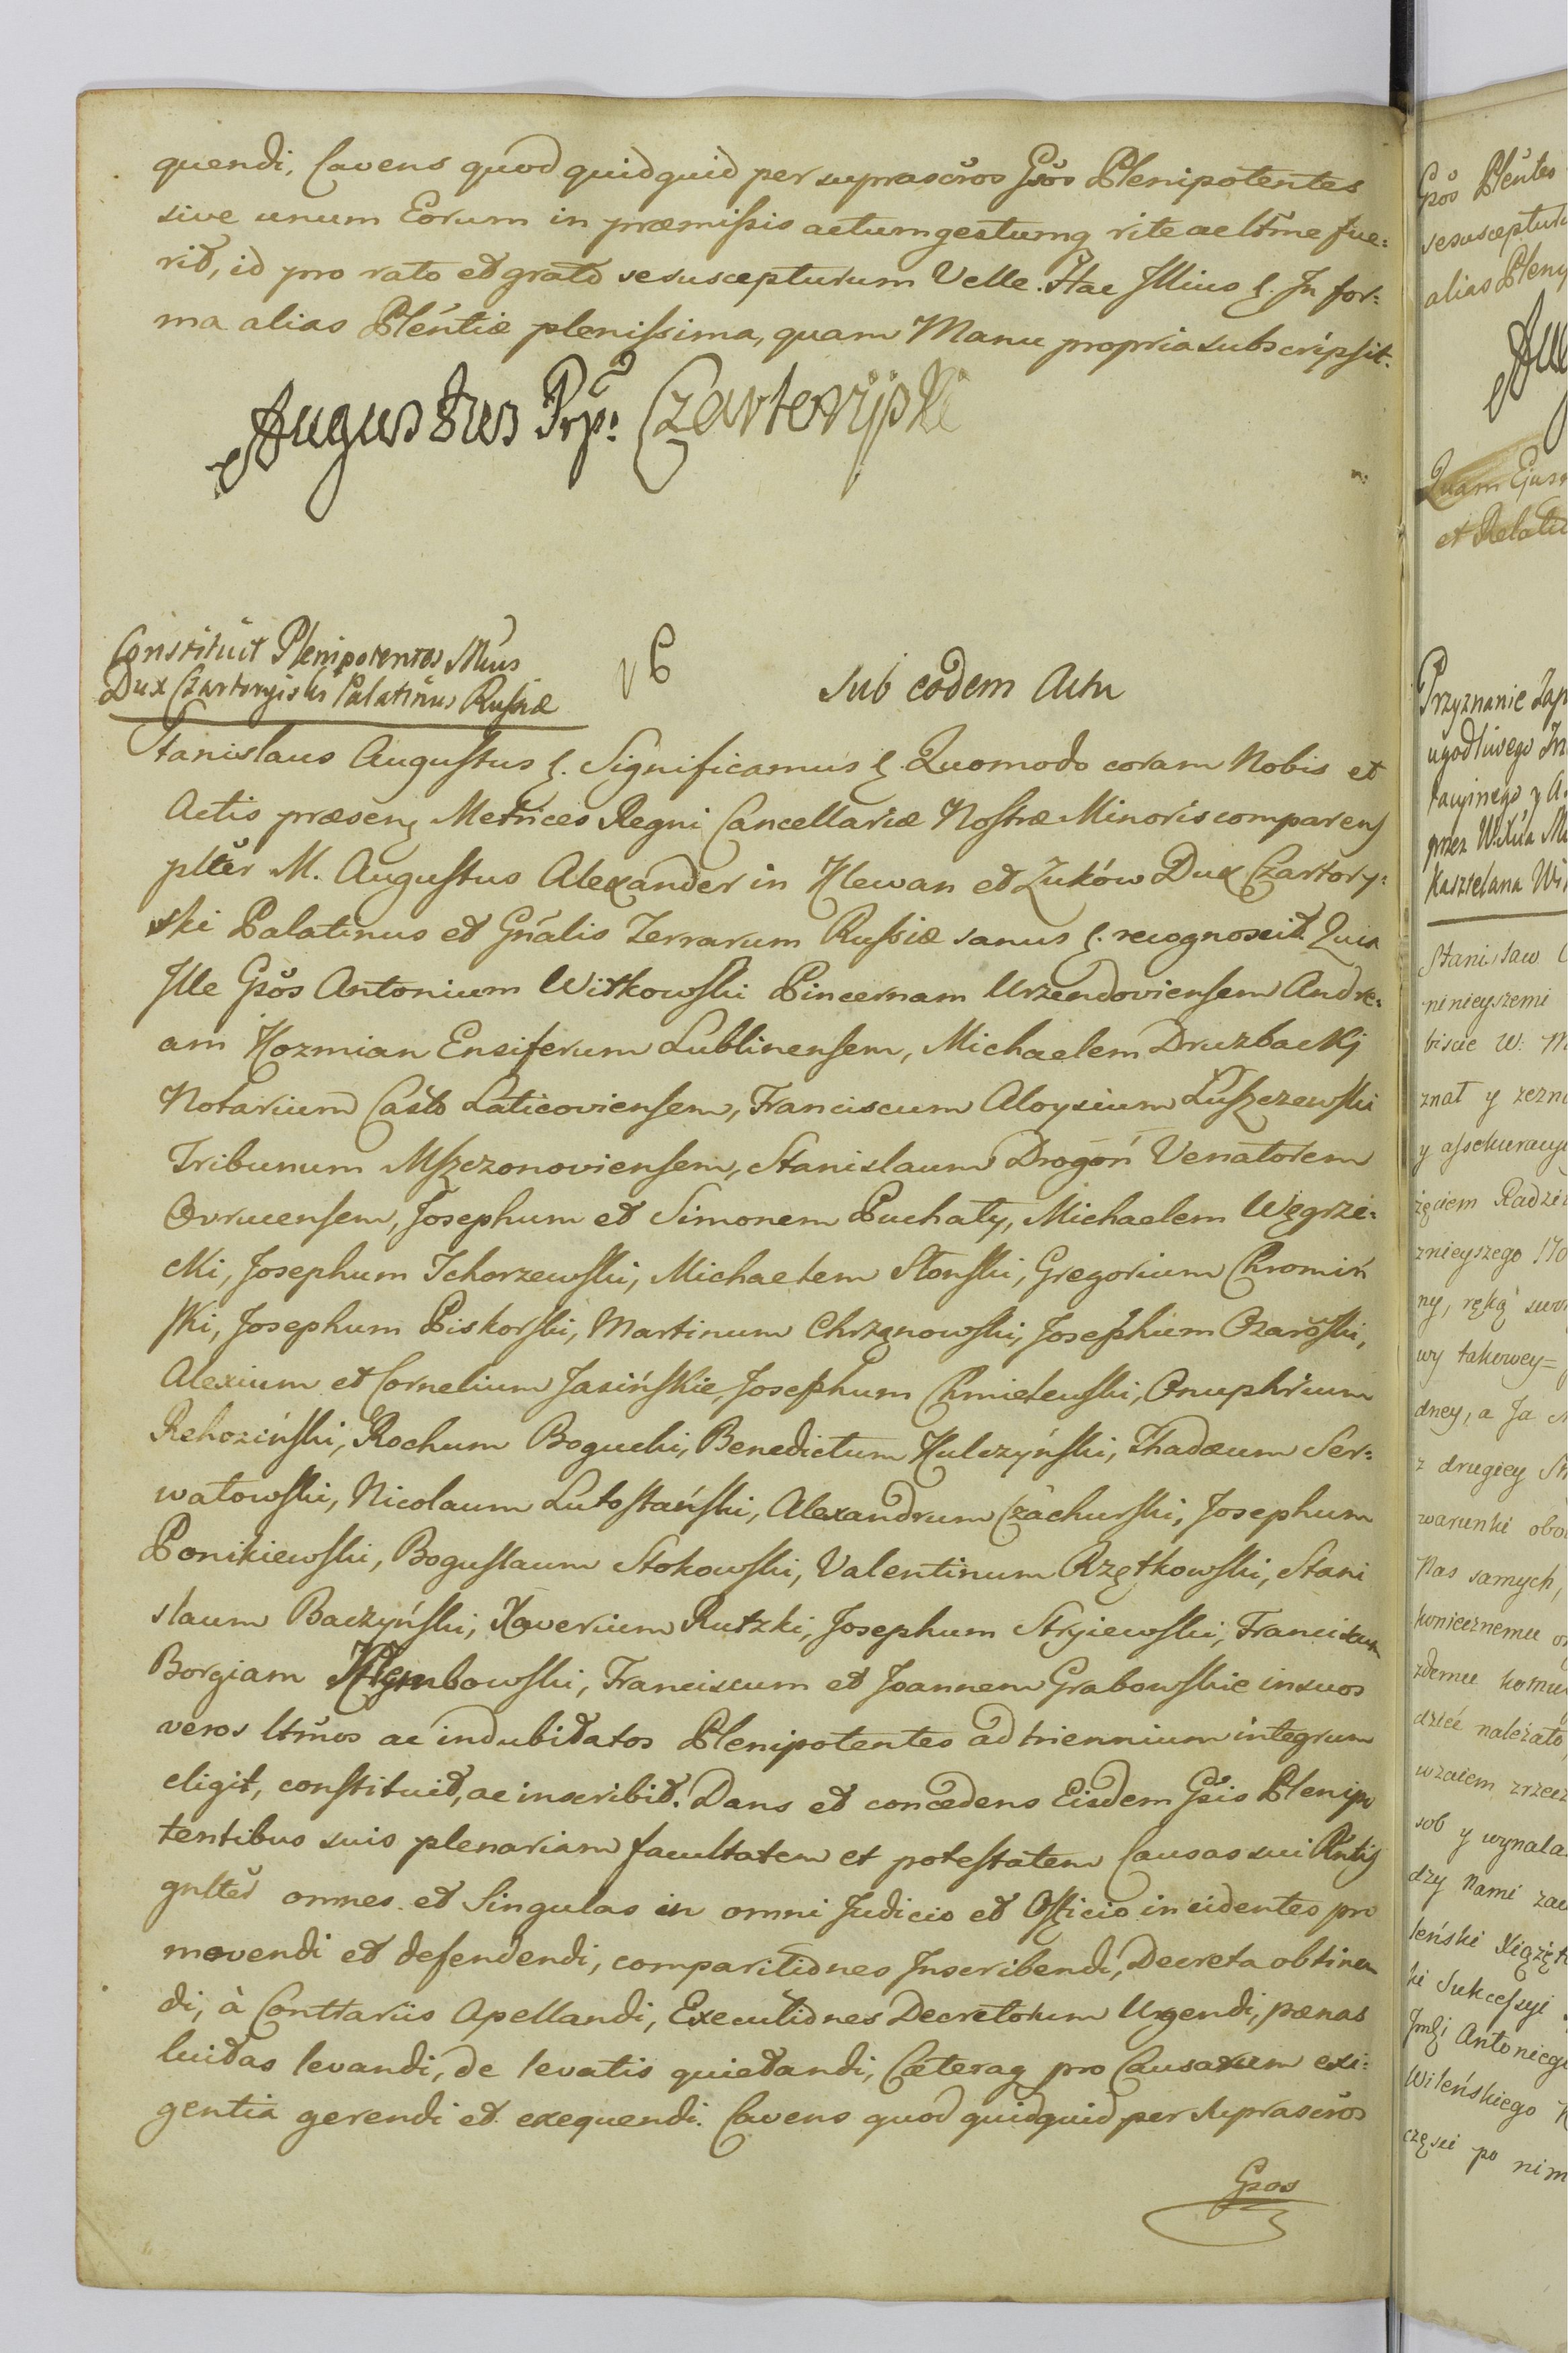 quendi, Cavens quod quidquid per suprascr̃os Gs̃os Plenipotentes
sive unum Eorum in præmissis actum gestumq rite ac ltm̃e fue=
rit, id pro rato et grato se suscepturum Velle. Hac Illius &. In for=
ma alias Plẽntiæ plenissima, quam Manu propria subscripsit.
Augustus Prp. Czartoryski
Constituit Plenipotentes Mũs
Dux Czartoryiski Palatinus Russiæ
Sub eodem Actu
Stanislaus Augustus &. Significamus &. Quomodo coram Nobis et
Actis præsenz Metrices Regni Cancellariæ Nostræ Minoris comparens
pltẽr M. Augustus Alexander in Klewan et Żuków Dux Czartory=
ski Palatinus et Gñalis Terrarum Russiæ sanus &. recognoscit. Quia
Ille Gs̃os Antonium Witkowski Pincernam Urzendoviensem Andre=
am Kozmian Ensiferum Lublinensem, Michaelem Druzbackj
Notarium Cas̃to Laticoviensem, Franciscum Aloysium Luszczewski
Tribunum Mszczonoviensem, Stanislaum Drogoń Venatorem
Ovrucensem, Josephum et Simonem Puchały, Michaelem Węgrze=
cki, Josephum Tchorzewski, Michaelem Słonski, Gregorium Chromiń
ski, Josephum Piskorski, Martinum Chrzanowski, Josephum Ozarowski,
Alexium et Cornelium Jasińskie, Josephum Chmielewski, Onuphrium
Rehoziński, Rochum Bogucki, Benedictum Hulczyński, Thadæum Ser=
watowski, Nicolaum Lutostański, Alexandrum Czachurski, Josephum
Ponikiewski, Boguslaum Stokowski, Valentinum Rzętkowski, Stani
slaum Baczyński, Xaverium Rutzki, Josephum Stryiewski, Franciscum
Borgiam Klembowski, Franciscum et Joannem Grabowskie in suos
veros ltm̃os ac indubitatos Plenipotentes ad triennium integrum
eligit, constituit, ac inscribit. Dans et concedens Eisdem Gs̃is Plenipo
tentibus suis plenariam facultatem et potestatem Causas sui Pñtis
gnltẽr omnes et Singulas in omni Judicio et Officio incidentes pro
movendi et defendendi, comparitiones Inscribendi, Decreta obtinen
di, à Contrariis Apellandi, Executiones Decretorum Urgendi, pœnas
luitas levandi, de levatis quietandi, Cæteraq pro Causarum exi=
gentia gerendi et exequendi. Cavens quod quidquid per suprascr̃os
Gsos
Gs̃os Plẽntes
se susceptur
alias Pleni
Quam Ejus
et Relati
Przyznanie Zap
ugodliwego
przez
Kasztelana Wi
Stanisław
ninieyszemi
biscie W.
znał y zezn
y assekuracyi
Radzi
znieyszego
ny, ręką swo
wy takowey=
dney, a Ja
z drugiey St
warunki obo
Nas samych,
koniecznemu
zdemu komu
dzieć należało
wzaiem zrzecz
sob y wynala
dzy Nami za
leński Xiążęt
ki Sukcessyi
Antoniego
Wileńskiego
części po nim